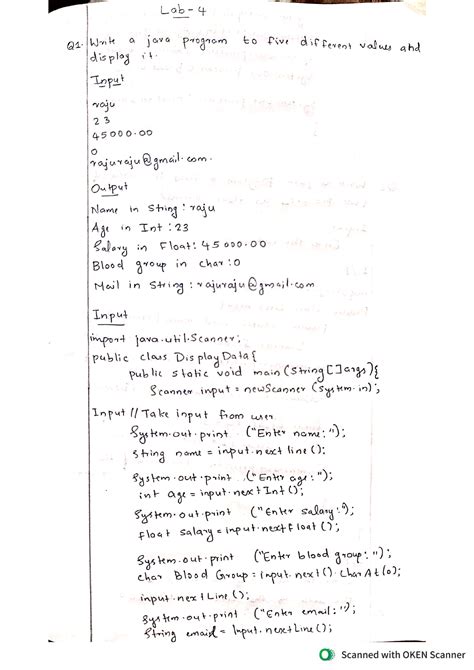 Lab-4
Q1. Write a java program to five different values and
display it.
Input
raju
23
45000.00
0
rajuraju@gmail.com.
Output
Name in String : raju
Age in Int : 23
Salary in Float: 45000.00
Blood group in char : 0
Mail in String : rajuraju@gmail.com
Input
import java.util.Scanner;
public class DisplayData{
public static void main (String[]args){
Scanner input = newScanner (System.in);
Input // Take input from user
System.out.print ("Enter name:");
string name = input.next line();
System.out.print ("Enter age:");
int age = input.nextInt();
System.out.print ("Enter salary:");
float salary = input.nextfloat();
System.out.print ("Enter blood group:");
char Blood Group = input.next().CharAt(0);
input.nextLine();
System.out.print ("Enter email:");
String email = Input.nextLine();
Scanned with OKEN Scanner